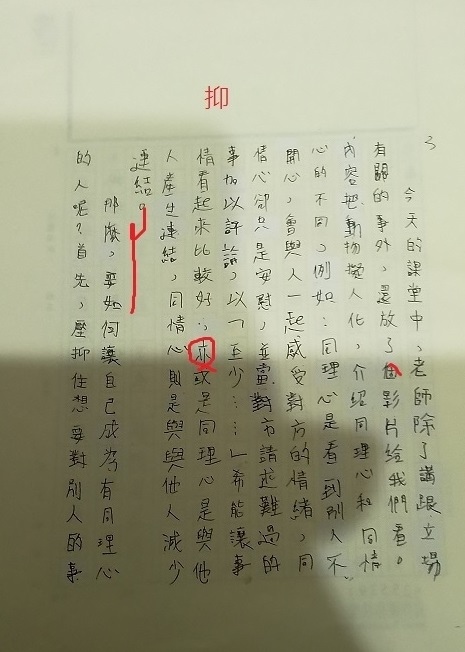 抑
3
今天的課堂中,老師除了講跟立場
有關的事外,還放了個影片給我們看。
內容把動物擬人化,介紹同理心和同情
心的不同,例如:同理心是看到別人不
開心,會與人一起感受對方的情緒,同
情心卻只是安慰,並當對方講述難過的
事加以評論,以「至少……」希能讓事
情看起來比較好,亦或是同理心是與他
人產生連結,同情心則是與與他人減少
連結。
那麼,要如何讓自己成為有同理心
的人呢?首先,壓抑住想要對別人的事